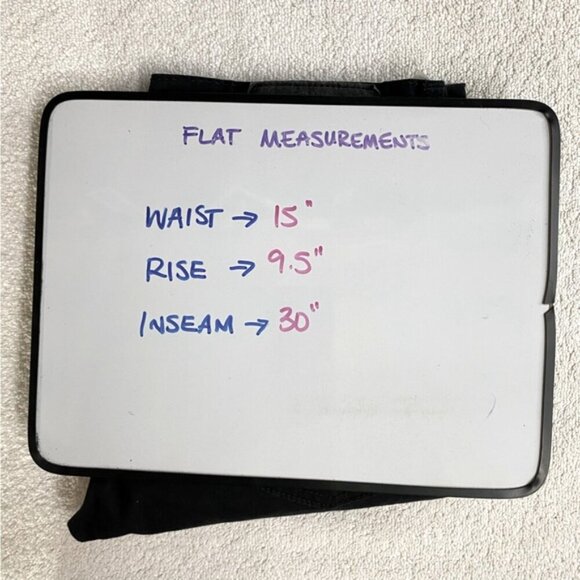 FLAT MEASUREMENTS
WAIST → 15"
RISE → 9.5"
INSEAM → 30"